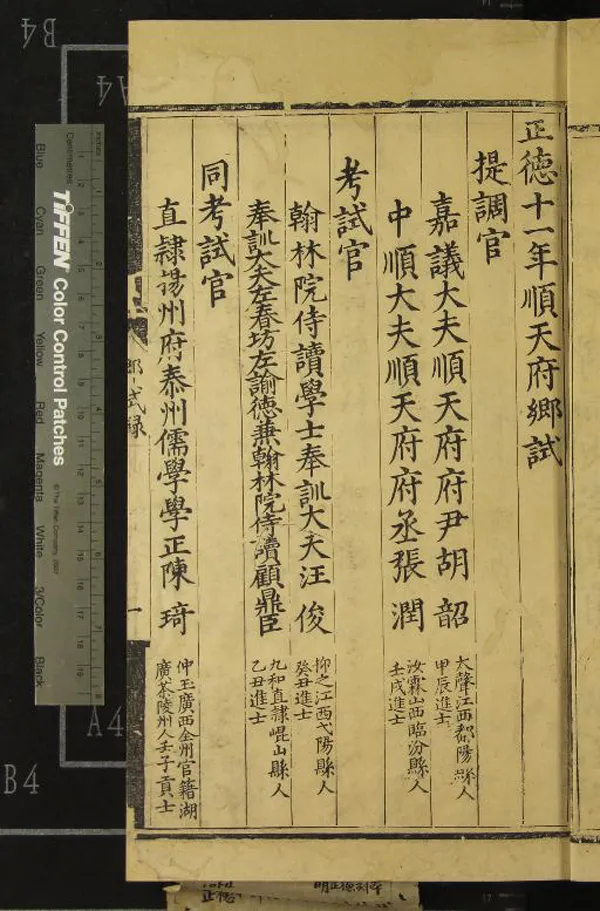 正德十一年順天府鄉試
提調官
嘉議大夫順天府府尹胡韶
大聲江西鄱陽縣人
甲辰進士
中順大夫順天府府丞張潤
汝霖山西臨汾縣人
壬戌進士
考試官
翰林院侍讀學士奉訓大夫汪俊
抑之江西弋陽縣人
癸丑進士
奉訓大夫左春坊左諭德兼翰林院侍讀顧鼎臣
九和直隸崐山縣人
乙丑進士
同考試官
直隸揚州府泰州儒學學正陳琦
仲玉廣西全州官籍湖
廣茶陵州人壬子貢士
鄉試録
一
B4
A4
A4
B4
TIFFEN Color Control Patches
© The Tiffen Company, 2007
Inches
Centimetres
Blue
Cyan
Green
Yellow
Red
Magenta
White
3/Color
Black